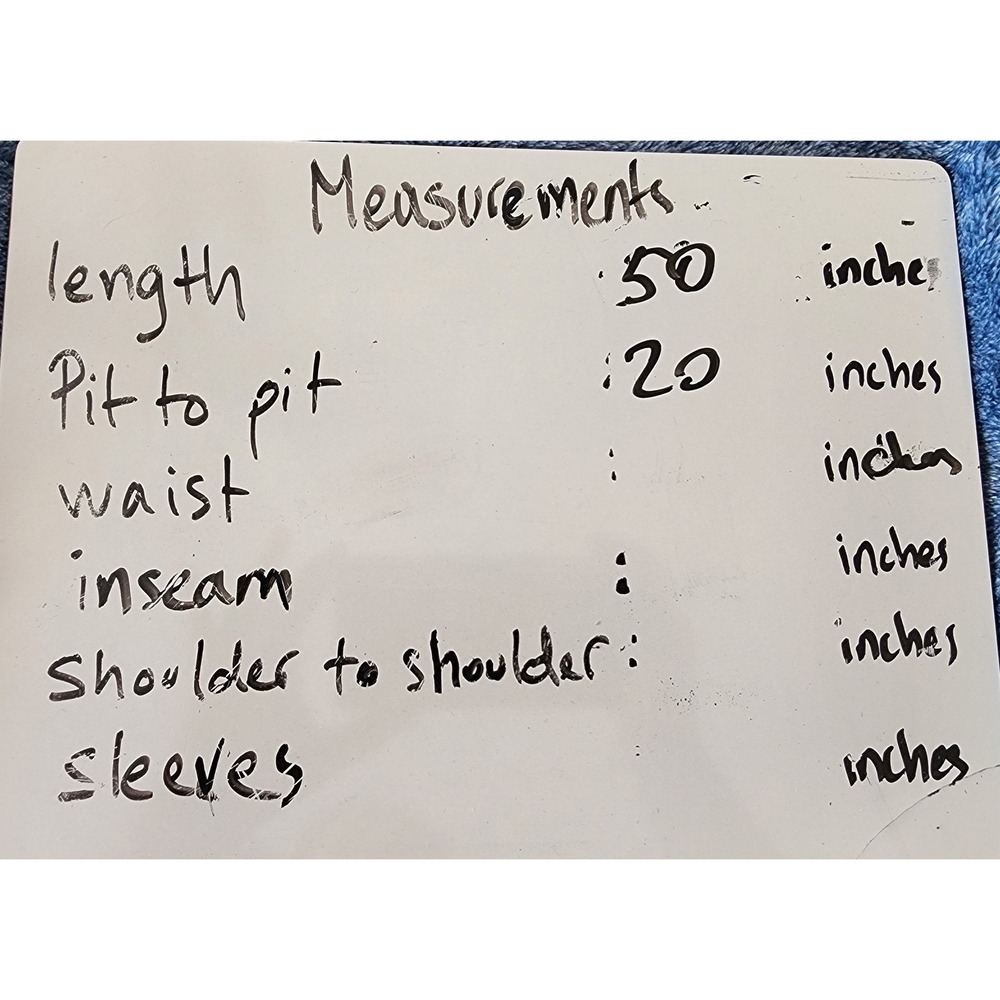 Measurements
length : 50 inche
Pit to pit : 20 inches
waist : inches
inseam : inches
shoulder to shoulder : inches
sleeves inches